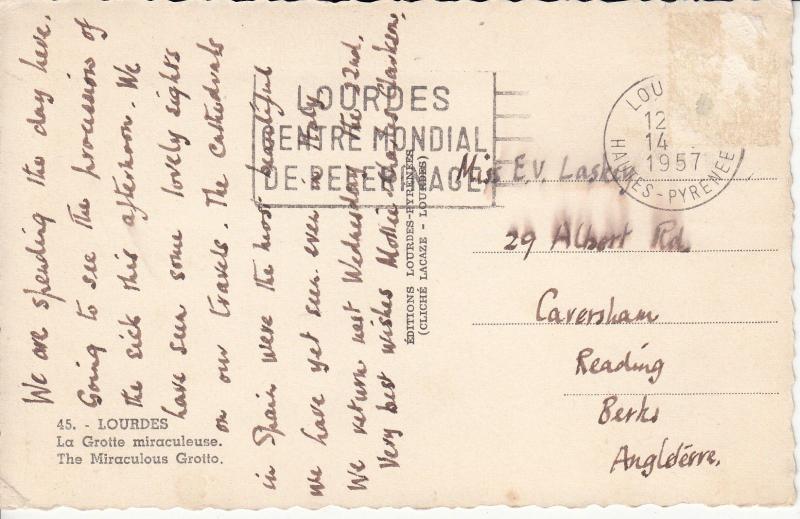 We are spending the day here.
Going to see the processions of
the sick this afternoon. We
have seen some lovely sights
on our travels. The Cathedrals
in Spain were the most beautiful
we have yet seen. even in Italy
We return next Wednesday the 22nd.
Very best wishes Mollie
45. - LOURDES
La Grotte miraculeuse.
The Miraculous Grotto.
LOURDES
CENTRE MONDIAL
DE PELERINAGE
ÉDITIONS LOURDES-PYRÉNÉES
(CLICHÉ LACAZE - LOURDES)
LOU
12
14
1957
HAUTES-PYRENEE
Miss E.V. Laskey
29 Albert Rd.
Caversham
Reading
Berks
Angleterre.